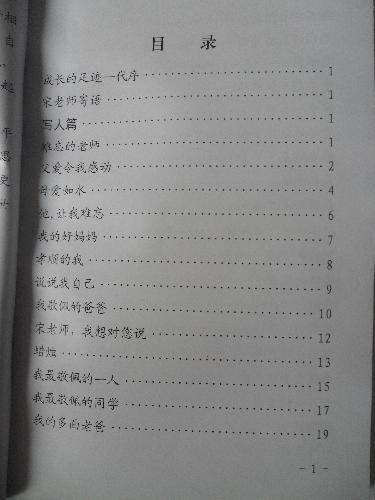 相
自
起
平
思
更
目 录
成长的足迹—代序 1
宋老师寄语 1
写人篇 1
难忘的老师 1
父爱令我感动 2
母爱如水 4
他,让我难忘 6
我的好妈妈 7
孝顺的我 8
说说我自己 9
我敬佩的爸爸 10
宋老师，我想对您说 12
蜡烛 13
我最敬佩的一人 15
我最敬佩的同学 17
我的多面老爸 19
- 1 -